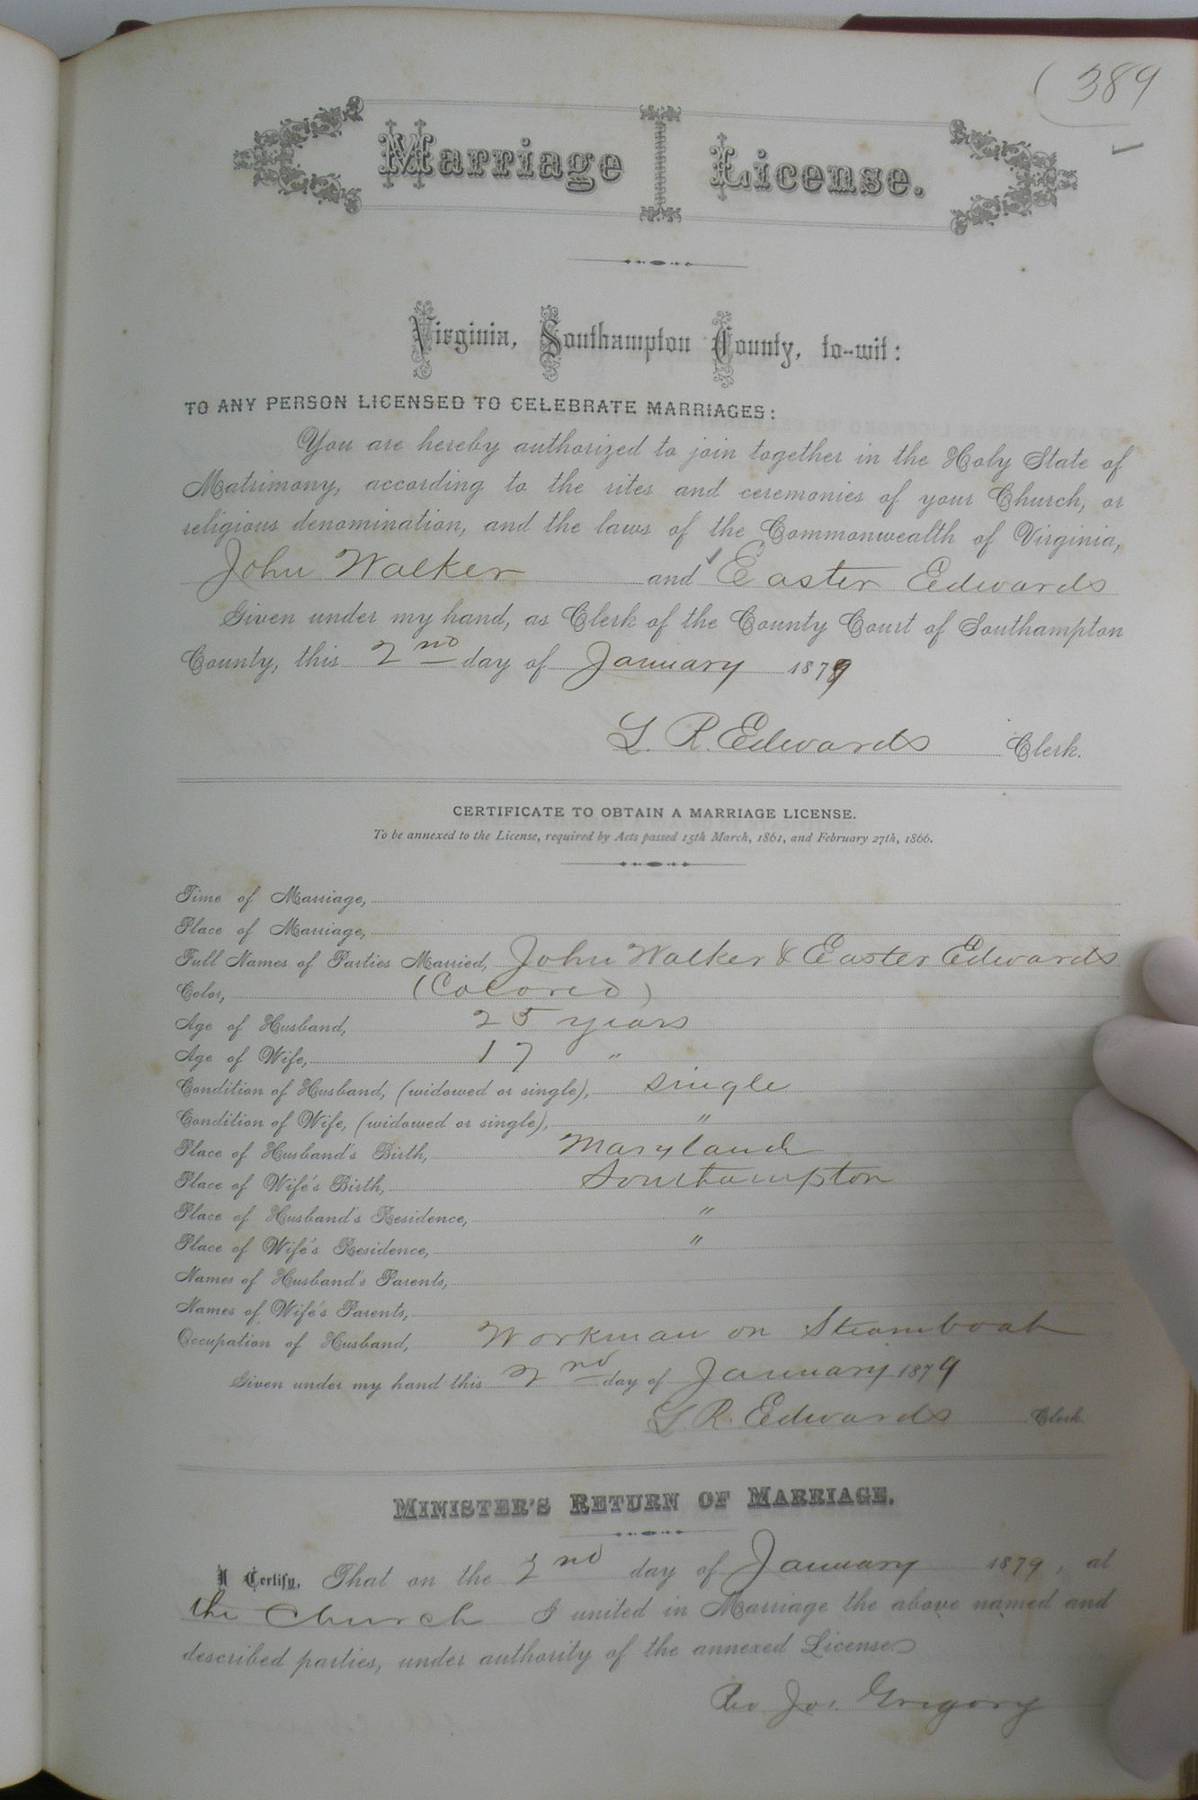 (389
Marriage License.
Virginia, Southampton County, to-wit:
TO ANY PERSON LICENSED TO CELEBRATE MARRIAGES:
You are hereby authorized to join together in the Holy State of
Matrimony, according to the rites and ceremonies of your Church, or
religious denomination, and the laws of the Commonwealth of Virginia,
John Walker and Easter Edwards
Given under my hand, as Clerk of the County Court of Southampton
County, this 2nd day of January 1879
L. R. Edwards Clerk.
CERTIFICATE TO OBTAIN A MARRIAGE LICENSE.
To be annexed to the License, required by Acts passed 15th March, 1861, and February 27th, 1866.
Time of Marriage,
Place of Marriage,
Full Names of Parties Married, John Walker & Easter Edwards
Color, (Colored)
Age of Husband, 25 years
Age of Wife, 17 "
Condition of Husband, (widowed or single), single
Condition of Wife, (widowed or single), "
Place of Husband's Birth, Maryland
Place of Wife's Birth, Southampton
Place of Husband's Residence, "
Place of Wife's Residence, "
Names of Husband's Parents,
Names of Wife's Parents,
Occupation of Husband, Workman on Steamboat
Given under my hand this 2nd day of January 1879
L. R. Edwards Clerk.
MINISTER'S RETURN OF MARRIAGE.
I Certify, That on the 2nd day of January 1879, at
the Church I united in Marriage the above named and
described parties, under authority of the annexed License.
Rev Jos. Grigory